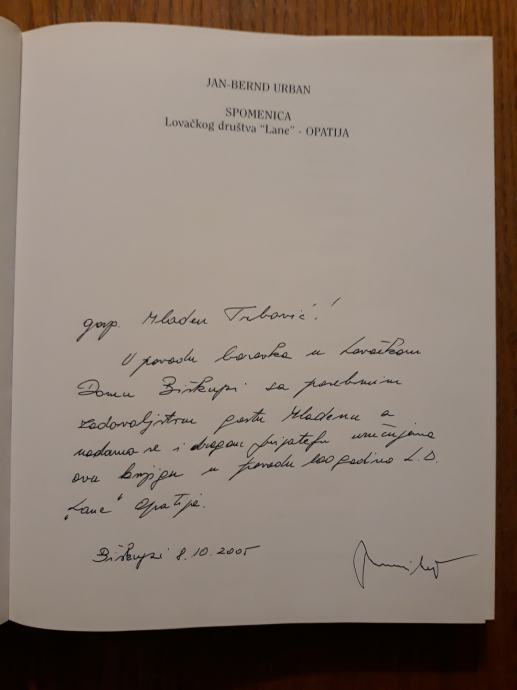 JAN-BERND URBAN
SPOMENICA
Lovačkog društva "Lane" - OPATIJA
gosp. Mladen Trbović!
U povodu boravka u Lovačkom
Domu Biškupi sa posebnim
zadovoljstvom gostu Mladenu a
nadamo se i dragom prijatelju uručujemo
ovu knjigu u povodu 100 godina L.D.
"Lane" Opatija.
Biškupi 8.10.2005